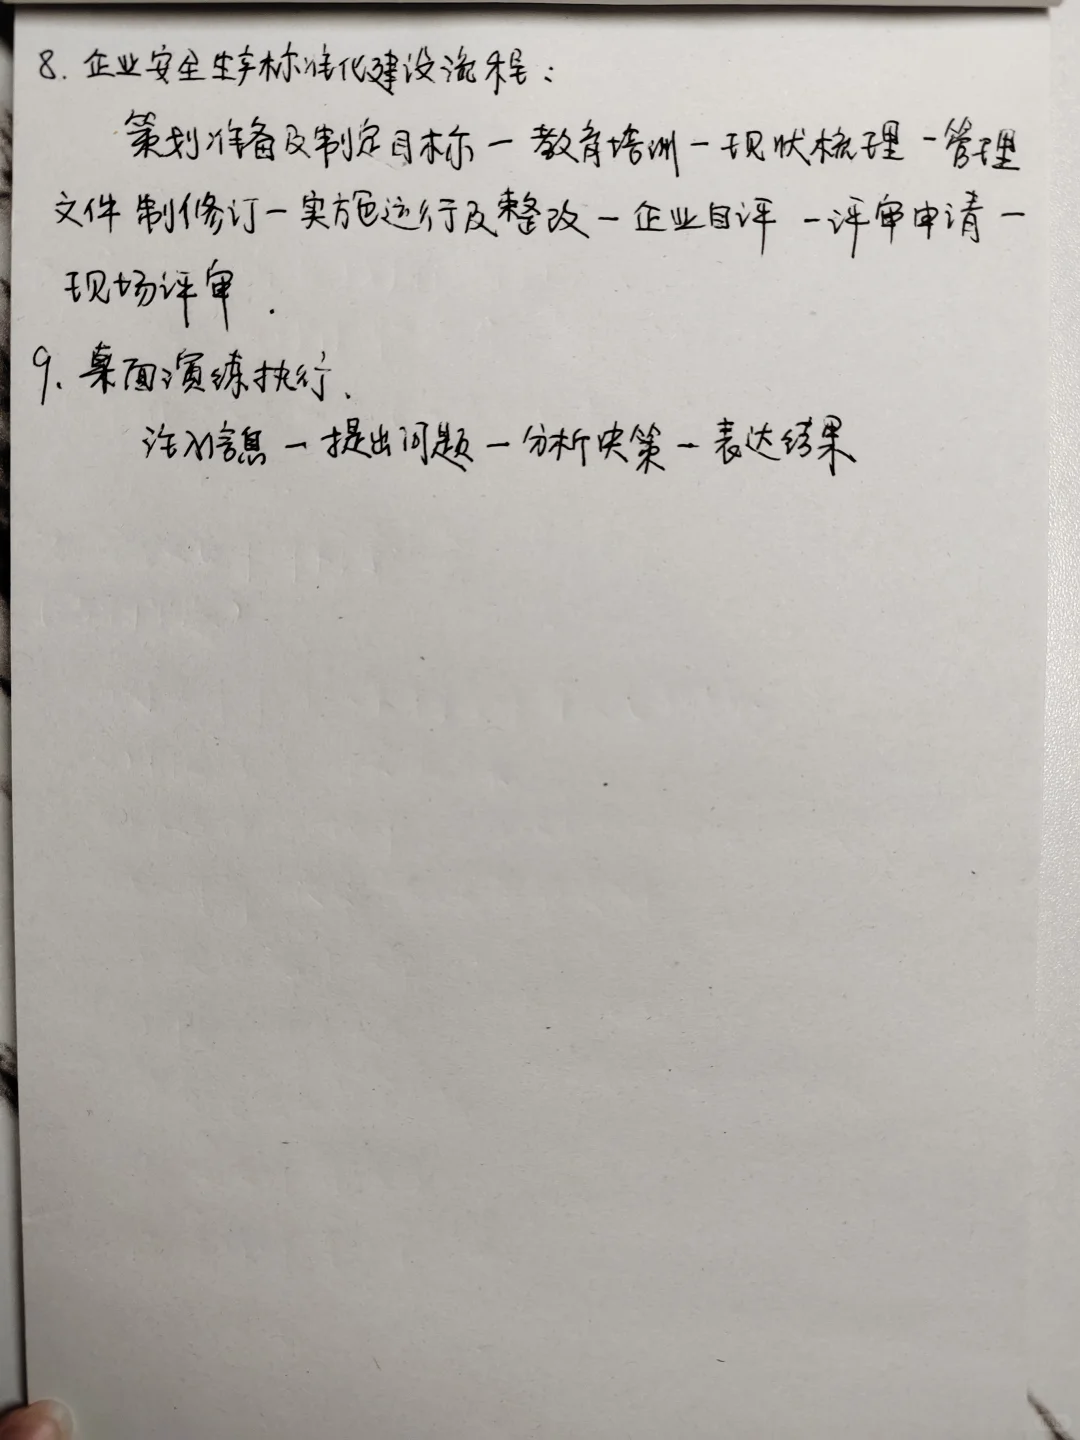 8. 企业安全生产标准化建设流程：
策划准备及制定目标一教育培训一现状梳理一管理
文件制修订一实施运行及整改一企业自评一评审申请一
现场评审.
9. 桌面演练执行.
注入信息一提出问题一分析决策一表达结果